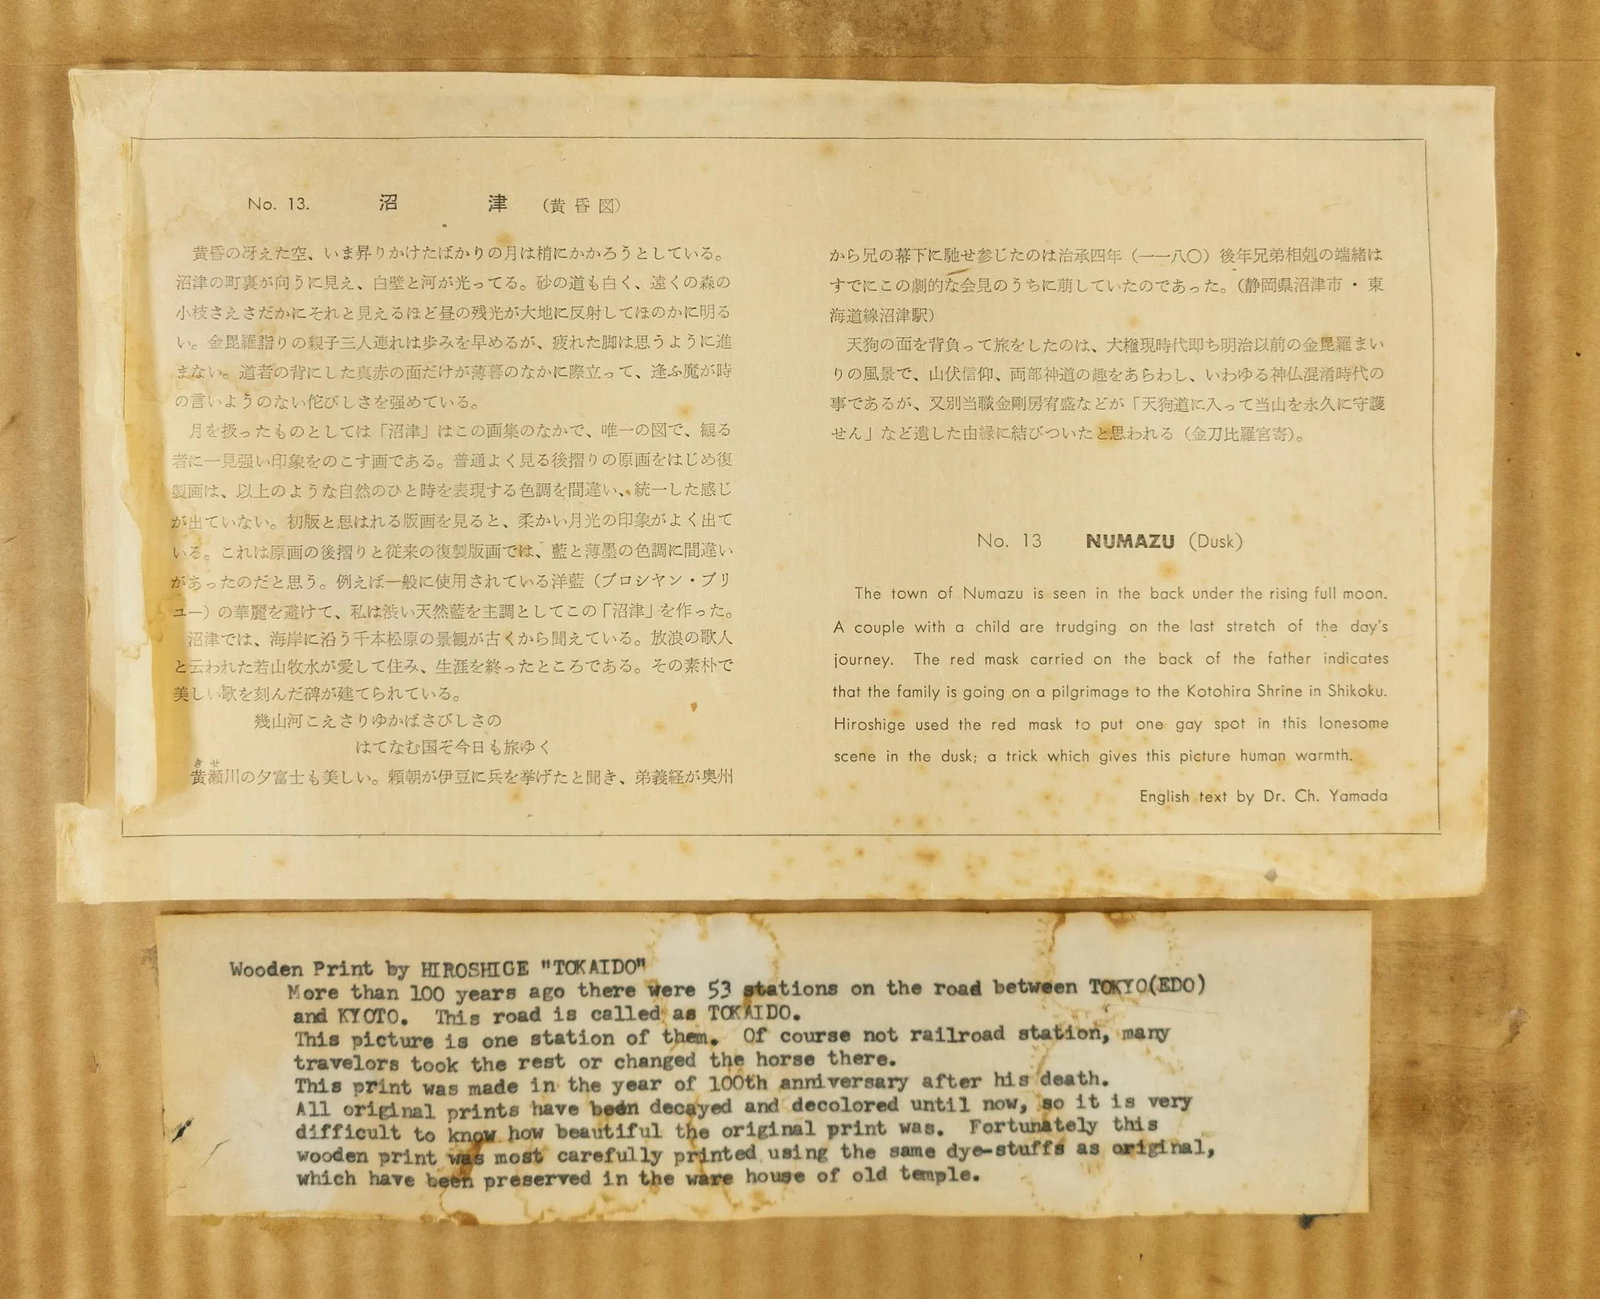 No. 13. 沼 津 (黄昏図)
黄昏の冴えた空、いま昇りかけたばかりの月は梢にかかろうとしている。
沼津の町裏が向うに見え、白壁と河が光ってる。砂の道も白く、遠くの森の
小枝さえさだかにそれと見えるほど昼の残光が大地に反射してほのかに明る
い。金毘羅詣りの親子三人連れは歩みを早めるが、疲れた脚は思うように進
まない。道者の背にした真赤の面だけが薄暮のなかに際立って、逢ふ魔が時
の言いようのない侘びしさを強めている。
月を扱ったものとしては「沼津」はこの画集のなかで、唯一の図で、観る
者に一見强い印象をのこす画である。普通よく見る後摺りの原画をはじめ復
製画は、以上のような自然のひと時を表現する色調を間違い、統一した感じ
が出ていない。初版と思はれる版画を見ると、柔かい月光の印象がよく出て
いる。これは原画の後摺りと従来の復製版画では、藍と薄墨の色調に間違い
があったのだと思う。例えば一般に使用されている洋藍（ブロシヤン・ブリ
ユー）の華麗を避けて、私は渋い天然藍を主調としてこの「沼津」を作った。
沼津では、海岸に沿う千本松原の景観が古くから聞えている。放浪の歌人
と云われた若山牧水が愛して住み、生涯を終ったところである。その素朴で
美しい歌を刻んだ碑が建てられている。
幾山河こえさりゆかばさびしさの
はてなむ国ぞ今日も旅ゆく
きせ
黄瀬川の夕富士も美しい。頼朝が伊豆に兵を挙げたと聞き、弟義経が奥州
から兄の幕下に馳せ参じたのは治承四年（一一八〇）後年兄弟相剋の端緒は
すでにこの劇的な会見のうちに萠していたのであった。（静岡県沼津市・東
海道線沼津駅）
天狗の面を背負って旅をしたのは、大権現時代即ち明治以前の金毘羅まい
りの風景で、山伏信仰、両部神道の趣をあらわし、いわゆる神仏混淆時代の
事であるが、又別当職金剛房宥盛などが「天狗道に入って当山を永久に守護
せん」など遺した由縁に結びついたと思われる（金刀比羅宮寄）。
No. 13 NUMAZU (Dusk)
The town of Numazu is seen in the back under the rising full moon.
A couple with a child are trudging on the last stretch of the day's
journey. The red mask carried on the back of the father indicates
that the family is going on a pilgrimage to the Kotohira Shrine in Shikoku.
Hiroshige used the red mask to put one gay spot in this lonesome
scene in the dusk; a trick which gives this picture human warmth.
English text by Dr. Ch. Yamada
Wooden Print by HIROSHIGE "TOKAIDO"
More than 100 years ago there were 53 stations on the road between TOKYO(EDO)
and KYOTO. This road is called as TOKAIDO.
This picture is one station of them. Of course not railroad station, many
travelors took the rest or changed the horse there.
This print was made in the year of 100th anniversary after his death.
All original prints have been decayed and decolored until now, so it is very
difficult to know how beautiful the original print was. Fortunately this
wooden print was most carefully printed using the same dye-stuffs as original,
which have been preserved in the ware house of old temple.